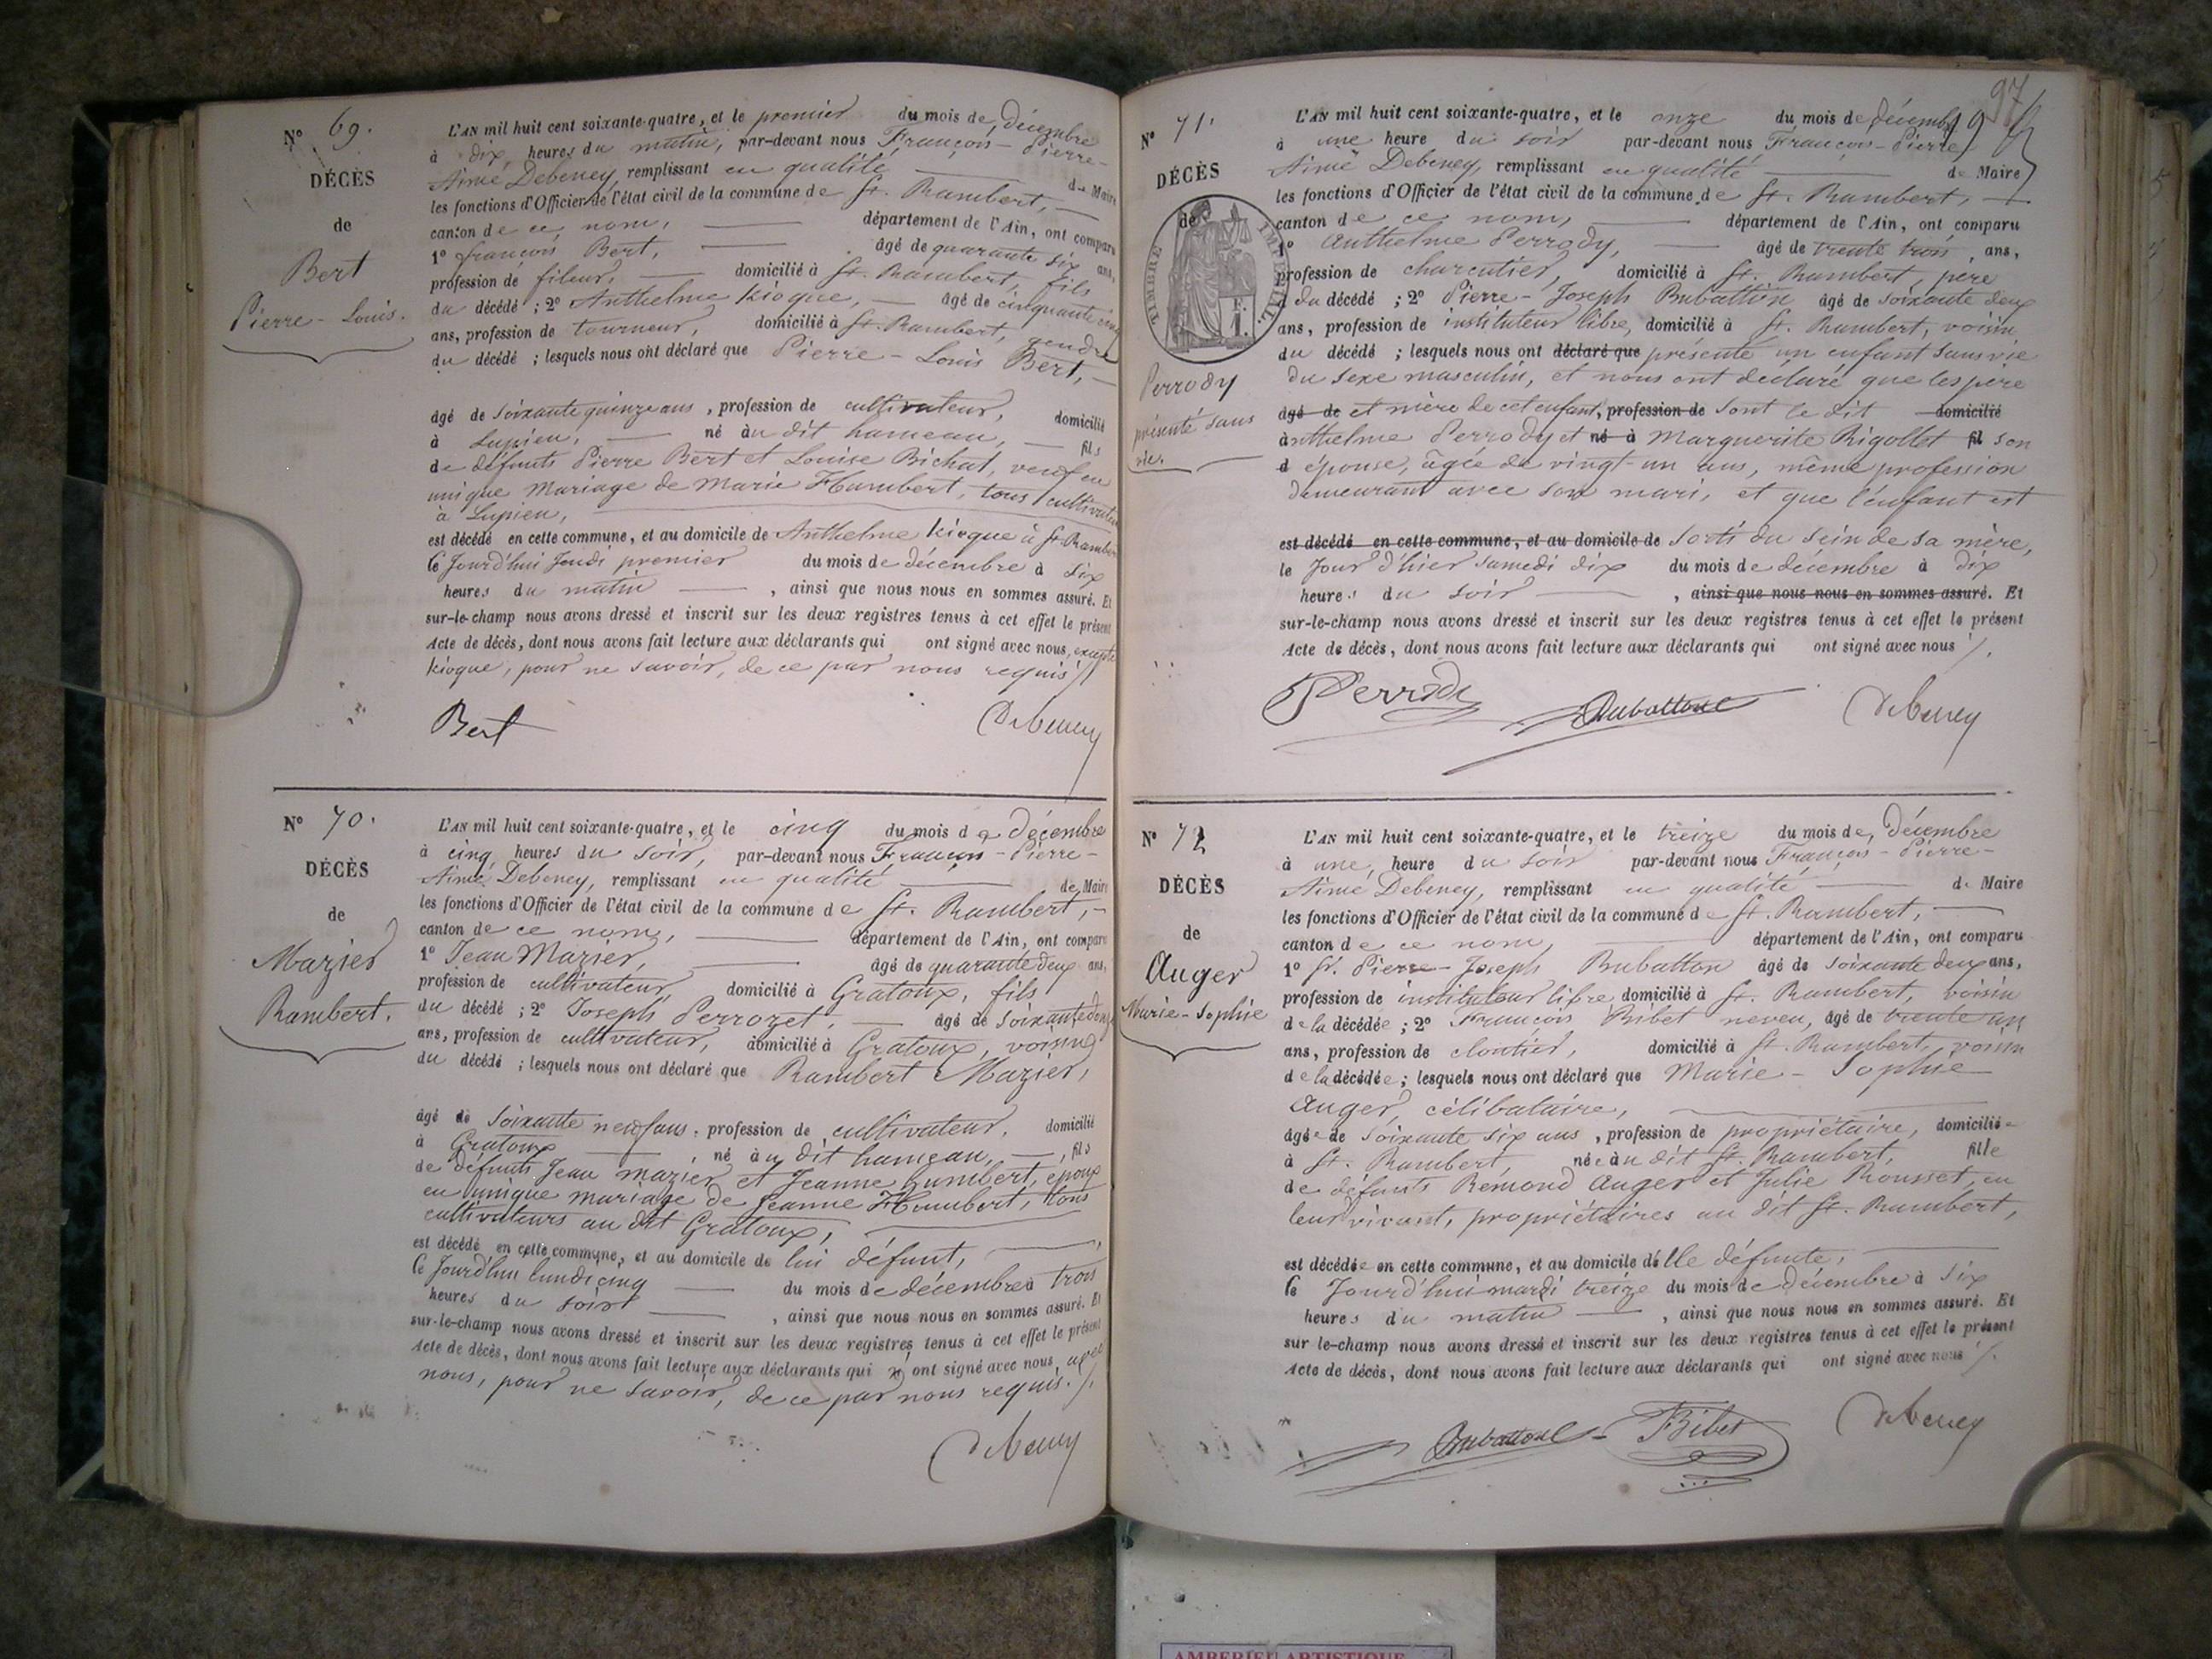 N° 69.
DÉCÈS
de
Bert
Pierre-Louis.
L'AN mil huit cent soixante-quatre, et le premier du mois de décembre
à dix heures du matin, par-devant nous François-Pierre-
Aimé Debeney, remplissant en qualité de Maire
les fonctions d'Officier de l'état civil de la commune de St. Rambert,
canton de ce nom, département de l'Ain, ont comparu
1° françois Bert, âgé de quarante six ans,
profession de fileur, domicilié à St. Rambert, fils
du décédé ; 2° Anthelme Kioque, âgé de cinquante cinq
ans, profession de tourneur, domicilié à St. Rambert, gendre
du décédé ; lesquels nous ont déclaré que Pierre-Louis Bert,
âgé de soixante quinze ans, profession de cultivateur, domicilié
à Lupieu, né au dit hameau, fils
de défunts Pierre Bert et Louise Bichat, veuf en
unique mariage de Marie Humbert, tous cultivateurs
à Lupieu,
est décédé en cette commune, et au domicile de Anthelme Kioque à St. Rambert
le jourd'hui jeudi premier du mois de décembre à six
heures du matin, ainsi que nous nous en sommes assuré. Et
sur-le-champ nous avons dressé et inscrit sur les deux registres tenus à cet effet le présent
Acte de décès, dont nous avons fait lecture aux déclarants qui ont signé avec nous, excepté
Kioque, pour ne savoir, de ce par nous requis ./.
Bert Debeney
N° 70.
DÉCÈS
de
Mazier
Rambert.
L'AN mil huit cent soixante-quatre, et le cinq du mois de décembre
à cinq heures du soir, par-devant nous François-Pierre-
Aimé Debeney, remplissant en qualité de Maire
les fonctions d'Officier de l'état civil de la commune de St. Rambert,
canton de ce nom, département de l'Ain, ont comparu
1° Jean Mazier, âgé de quarante deux ans,
profession de cultivateur, domicilié à Gratoux, fils
du décédé ; 2° Joseph Perrozet, âgé de soixante deux
ans, profession de cultivateur, domicilié à Gratoux, voisin
du décédé ; lesquels nous ont déclaré que Rambert Mazier,
âgé de soixante neuf ans, profession de cultivateur, domicilié
à Gratoux né au dit hameau, fils
de défunts Jean Mazier et Jeanne humbert, époux
en unique mariage de Jeanne Humbert, tous
cultivateurs au dit Gratoux,
est décédé en cette commune, et au domicile de lui défunt,
le jourd'hui lundi cinq du mois de décembre à trois
heures du soir, ainsi que nous nous en sommes assuré. Et
sur-le-champ nous avons dressé et inscrit sur les deux registres tenus à cet effet le présent
Acte de décès, dont nous avons fait lecture aux déclarants qui n'ont signé avec nous, avec
nous, pour ne savoir, de ce par nous requis ./.
Debeney
97
N° 71.
DÉCÈS
de
TIMBRE IMPÉRIAL.
F. 1.
Perrody
présenté sans
vie.
L'AN mil huit cent soixante-quatre, et le onze du mois de décembre
à une heure du soir par-devant nous François-Pierre
Aimé Debeney, remplissant en qualité de Maire
les fonctions d'Officier de l'état civil de la commune de St. Rambert,
canton de ce nom, département de l'Ain, ont comparu
1° Anthelme Perrody, âgé de trente trois ans,
profession de charcutier, domicilié à St. Rambert, père
du décédé ; 2° Pierre-Joseph Dubatton âgé de soixante deux
ans, profession de instituteur libre, domicilié à St. Rambert, voisin
du décédé ; lesquels nous ont déclaré que présenté un enfant sans vie
du sexe masculin, et nous ont déclaré que les père
âgé de et mère de cet enfant, profession de sont le dit domicilié
à anthelme Perrody et né à Marguerite Rigollet fil son
d épouse, âgée de vingt-un ans, même profession
demeurant avec son mari, et que l'enfant est
est décédé en cette commune, et au domicile de sorti du sein de sa mère,
le jour d'hier samedi dix du mois de décembre à dix
heures du soir, ainsi que nous nous en sommes assuré. Et
sur-le-champ nous avons dressé et inscrit sur les deux registres tenus à cet effet le présent
Acte de décès, dont nous avons fait lecture aux déclarants qui ont signé avec nous ./.
Perrody Dubatton Debeney
N° 72
DÉCÈS
de
Auger
Marie-Sophie
L'AN mil huit cent soixante-quatre, et le treize du mois de décembre
à une heure du soir par-devant nous François-Pierre-
Aimé Debeney, remplissant en qualité de Maire
les fonctions d'Officier de l'état civil de la commune de St. Rambert,
canton de ce nom, département de l'Ain, ont comparu
1° Sr. Pierre-Joseph Dubatton âgé de soixante deux ans,
profession de instituteur libre, domicilié à St. Rambert, voisin
de la décédée ; 2° François Bibet neveu, âgé de trente un
ans, profession de cloutier, domicilié à St. Rambert, voisin
de la décédée ; lesquels nous ont déclaré que Marie-Sophie
Auger, célibataire,
âgée de soixante six ans, profession de propriétaire, domiciliée
à St. Rambert, née au dit St. Rambert, fille
de défunts Remond Auger et Julie Rousset, en
leur vivant, propriétaires au dit St. Rambert,
est décédée en cette commune, et au domicile d'elle défunte,
le jourd'hui mardi treize du mois de décembre à six
heures du matin, ainsi que nous nous en sommes assuré. Et
sur le-champ nous avons dressé et inscrit sur les deux registres tenus à cet effet le présent
Acte de décès, dont nous avons fait lecture aux déclarants qui ont signé avec nous ./.
Dubatton Bibet Debeney
AMBERIEU ARTISTIQUE